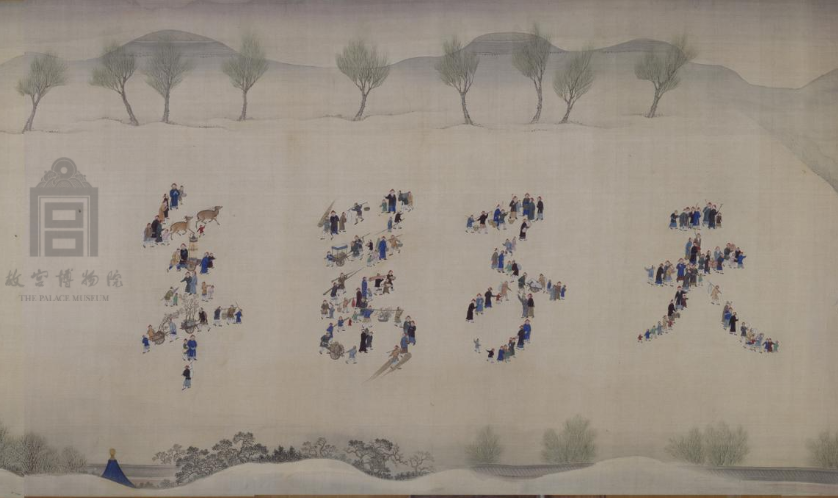 天子萬年
故宫博物院
THE PALACE MUSEUM